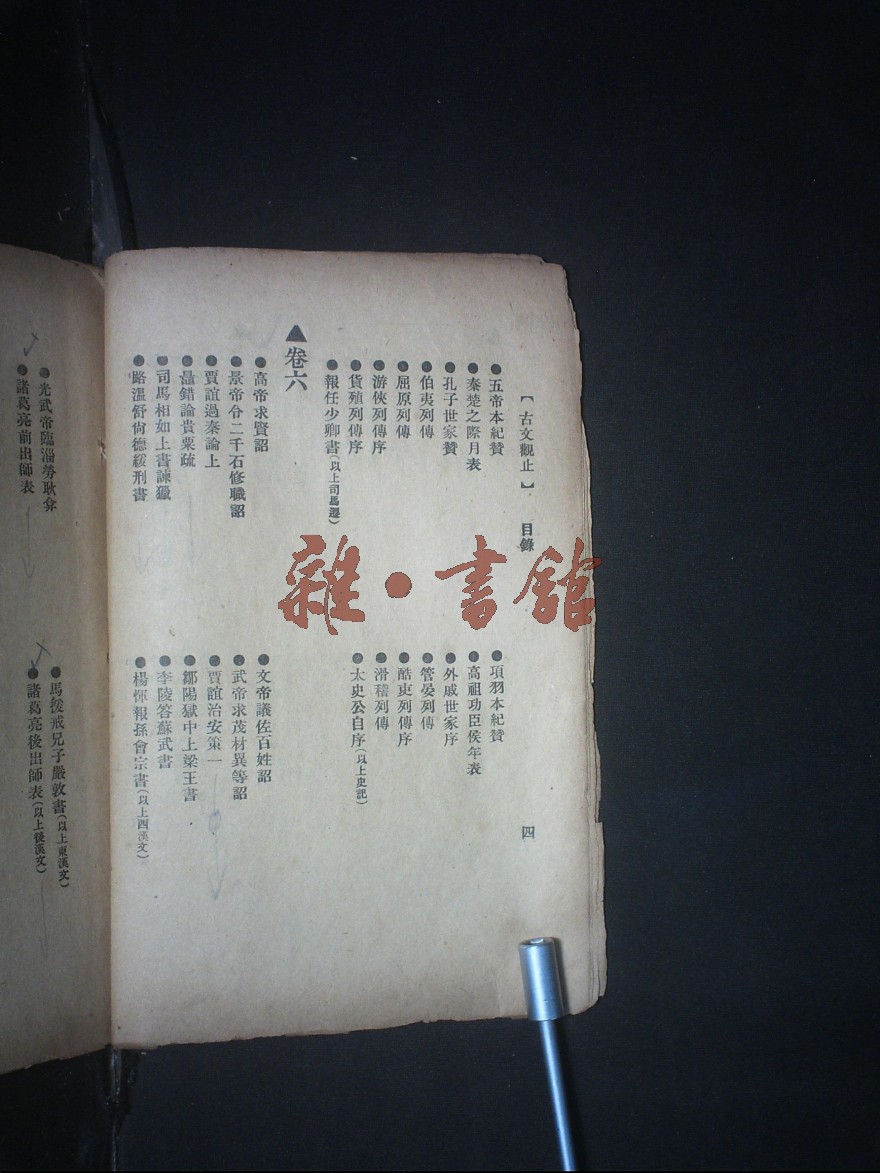 【古文觀止】 目錄 四
●五帝本紀贊 ●項羽本紀贊
●秦楚之際月表 ●高祖功臣侯年表
●孔子世家贊 ●外戚世家序
●伯夷列傳 ●管晏列傳
●屈原列傳 ●酷吏列傳序
●游俠列傳序 ●滑稽列傳
●貨殖列傳序 ●太史公自序(以上史記)
●報任少卿書(以上司馬遷)
▲卷六
●高帝求賢詔 ●文帝議佐百姓詔
●景帝令二千石修職詔 ●武帝求茂材異等詔
●賈誼過秦論上 ●賈誼治安策一
●鼂錯論貴粟疏 ●鄒陽獄中上梁王書
●司馬相如上書諫獵 ●李陵答蘇武書
●路溫舒尚德緩刑書 ●楊惲報孫會宗書(以上西漢文)
●光武帝臨淄勞耿弇 ●馬援戒兄子嚴敦書(以上東漢文)
●諸葛亮前出師表 ●諸葛亮後出師表(以上後漢文)
雜·書館